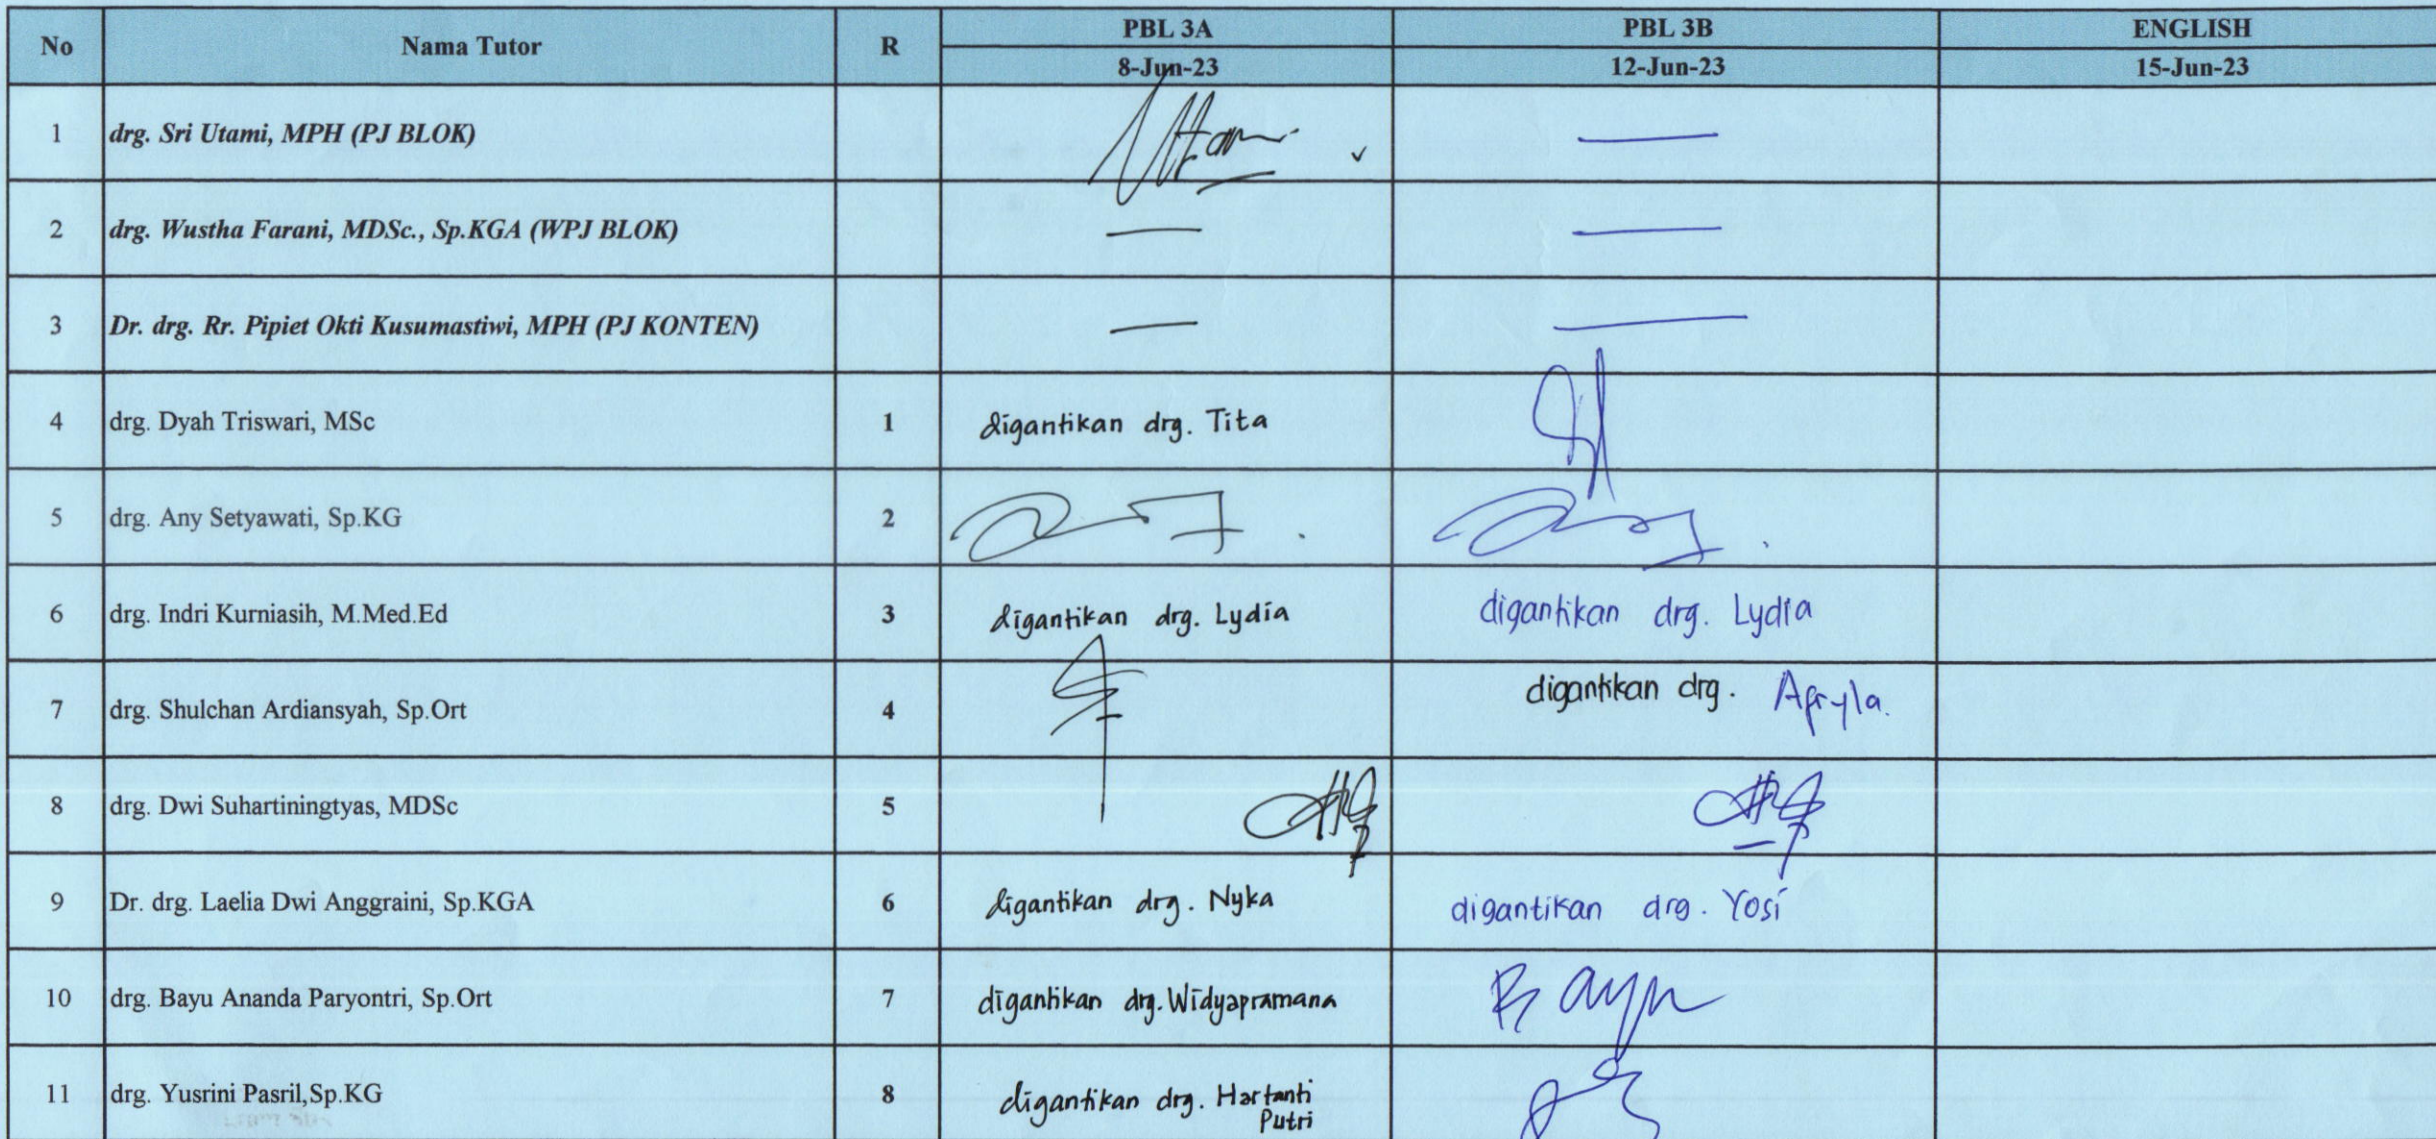 No Nama Tutor R PBL 3A PBL 3B ENGLISH
8-Jun-23 12-Jun-23 15-Jun-23
1 drg. Sri Utami, MPH (PJ BLOK)
2 drg. Wustha Farani, MDSc., Sp.KGA (WPJ BLOK)
3 Dr. drg. Rr. Pipiet Okti Kusumastiwi, MPH (PJ KONTEN)
4 drg. Dyah Triswari, MSc 1 digantikan drg. Tita
5 drg. Any Setyawati, Sp.KG 2
6 drg. Indri Kurniasih, M.Med.Ed 3 digantikan drg. Lydia digantikan drg. Lydia
7 drg. Shulchan Ardiansyah, Sp.Ort 4 digantikan drg.
8 drg. Dwi Suhartiningtyas, MDSc 5
9 Dr. drg. Laelia Dwi Anggraini, Sp.KGA 6 digantikan drg. Nyka digantikan drg. Yosi
10 drg. Bayu Ananda Paryontri, Sp.Ort 7 digantikan drg. Widyapramana Bayu
11 drg. Yusrini Pasril,Sp.KG 8 digantikan drg. Hartanti
Putri